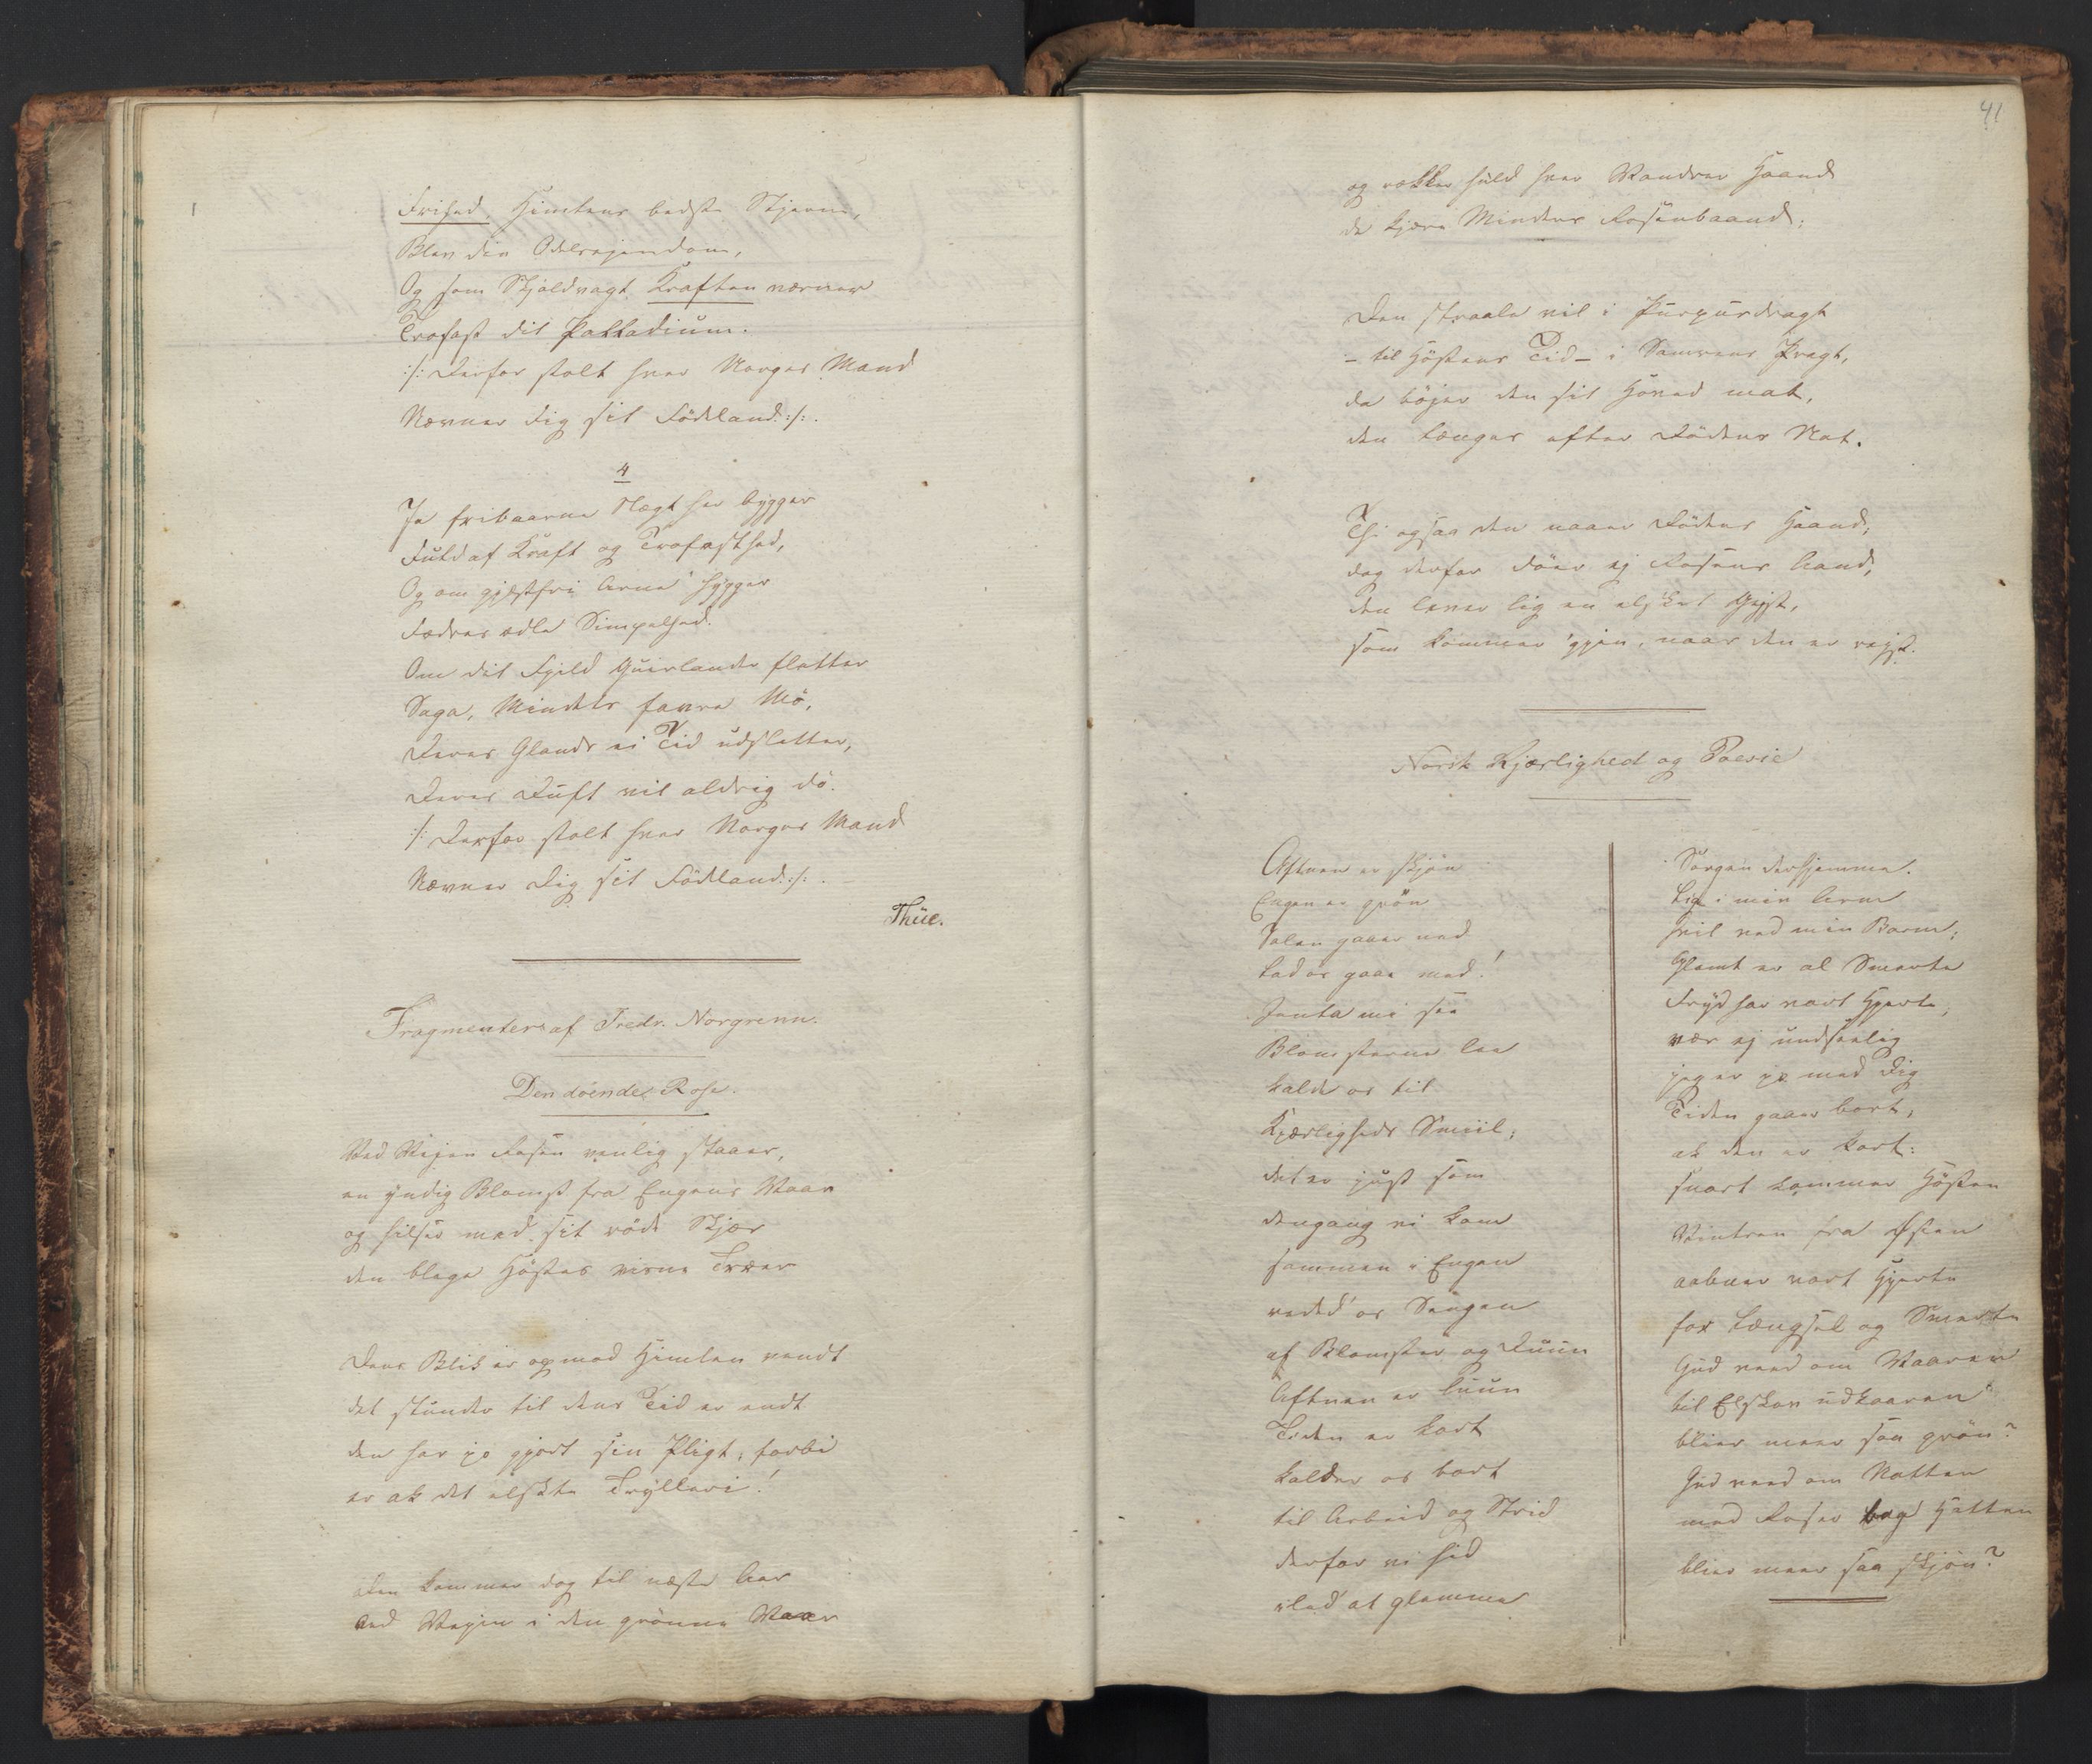 Frihed, Himlens bedste Stjerne,
Blev din Odelsejendom,
Og som Skjoldvagt Kraften værner
Trofast dit Palladium.
:/: Derfor stolt hver Norges Mand
Nævner Dig sit Födeland :/:.
4
Ja fribaarne Slægt her bygger
Fuld af Kraft og Trofasthed,
Og om gjestfri Arne hygger
Fædres ædle Simpelhed.
Om dit Fjeld Guirlander fletter
Saga, Mindets favre Mö,
Deres Glands ei Tid udsletter,
Deres Duft vil aldrig dö.
:/: Derfor stolt hver Norges Mand
Nævner Dig sit Födeland :/:.
Thüe.
Fragmenter af Fredr. Norgrenn.
Den döende Rose.
Ved Vejen Rosen venlig staaer,
en yndig Blomst fra Engens Vaar
og hilser med sit röde Skjær
den blege Höstes visne Træer
Dens Blik er op mod Himlen vendt
det stunder til dens Tid er endt
den har jo gjort sin Pligt; forbi
er ak det elskte Trylleri!
Den kommer dog til næste Aar
ved Vejen i den grönne Vaar
41
og rækker huld hver Vandrer Haand
de kjære Minders Rosenbaand;
Den straale vil i Purpurdragt
- til Höstens Tid - i Somrens Pragt,
da böjer den sit Hoved mat,
den længes efter Dödens Nat.
Thi ogsaa den naaer Dödens Haand,
dog derfor döer ej Rosens Aand,
den lever lig en elsket Gejst,
som kommer 'gjen, naar den er rejst.
Norsk Kjærlighed og Poesie
Aftnen er skjön
Engen er grön
Solen gaaer ned
Lad os gaae med!
Jenta mi see
Blomsterne lee
kalde os til
Kjærligheds Smiil;
det er just som
dengang vi kom
sammen i Engen
redte os Sengen
af Blomster og Duun
Aftnen er luun
Tiden er kort
kalder os bort
til Arbeid og Strid
derfor vi hid
iled' at glemme
Sorgen derhjemme.
Lig i min Arm
hvil ved min Barm;
Glemt er al Smerte
Fryd har vort Hjerte,
vær ej undseelig
jeg er jo med Dig
Tiden gaaer bort,
ak den er kort:
snart kommer Hösten
Vintren fra Østen
aabner vort Hjerte
for Længsel og Smerte
Gud veed om Vaaren
til Elskov udkaaren
blier meer saa grön?
Gud veed om Natten
med Roser bag Hatten
blier meer saa skjön?